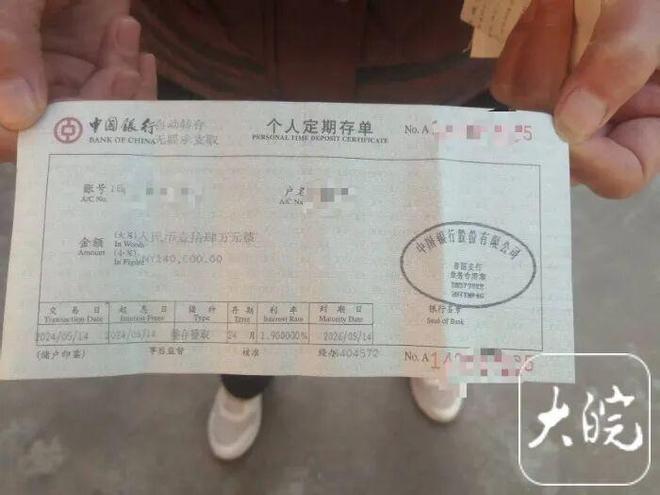 中国银行 自动转存
BANK OF CHINA 无限承支取
个人定期存单
PERSONAL TIME DEPOSIT CERTIFICATE
No. A
账号
A/C No.
户名
A/C Na
金额
Amount
(大写)
In Words
人民币壹拾肆万元整
(小写)
In Figures
140,000.00
中国银行股份有限公司
业务专用章
银行签章
Seal of Bank
交易日 起息日 储种 存期 利率 到期日
Transaction Date Interest From Type Term Interest Rate Maturity Date
2024/05/14 2024/05/14 整存整取 24 月 1.900000% 2026/05/14
(储户印鉴) 事后监督 核准 经办 No. A
大皖